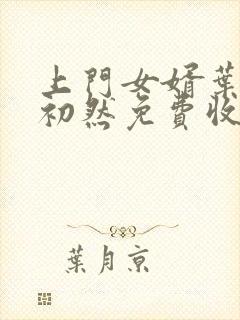 上門女婿葉
初然免費收
葉月京